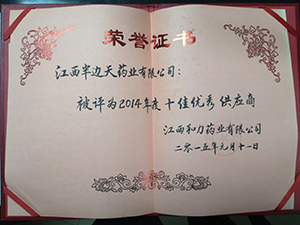 荣誉证书
江西半边天药业有限公司：
被评为2014年度十佳优秀供应商
江西和力药业有限公司
二零一五年元月十一日